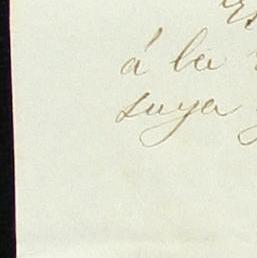 á la
suya